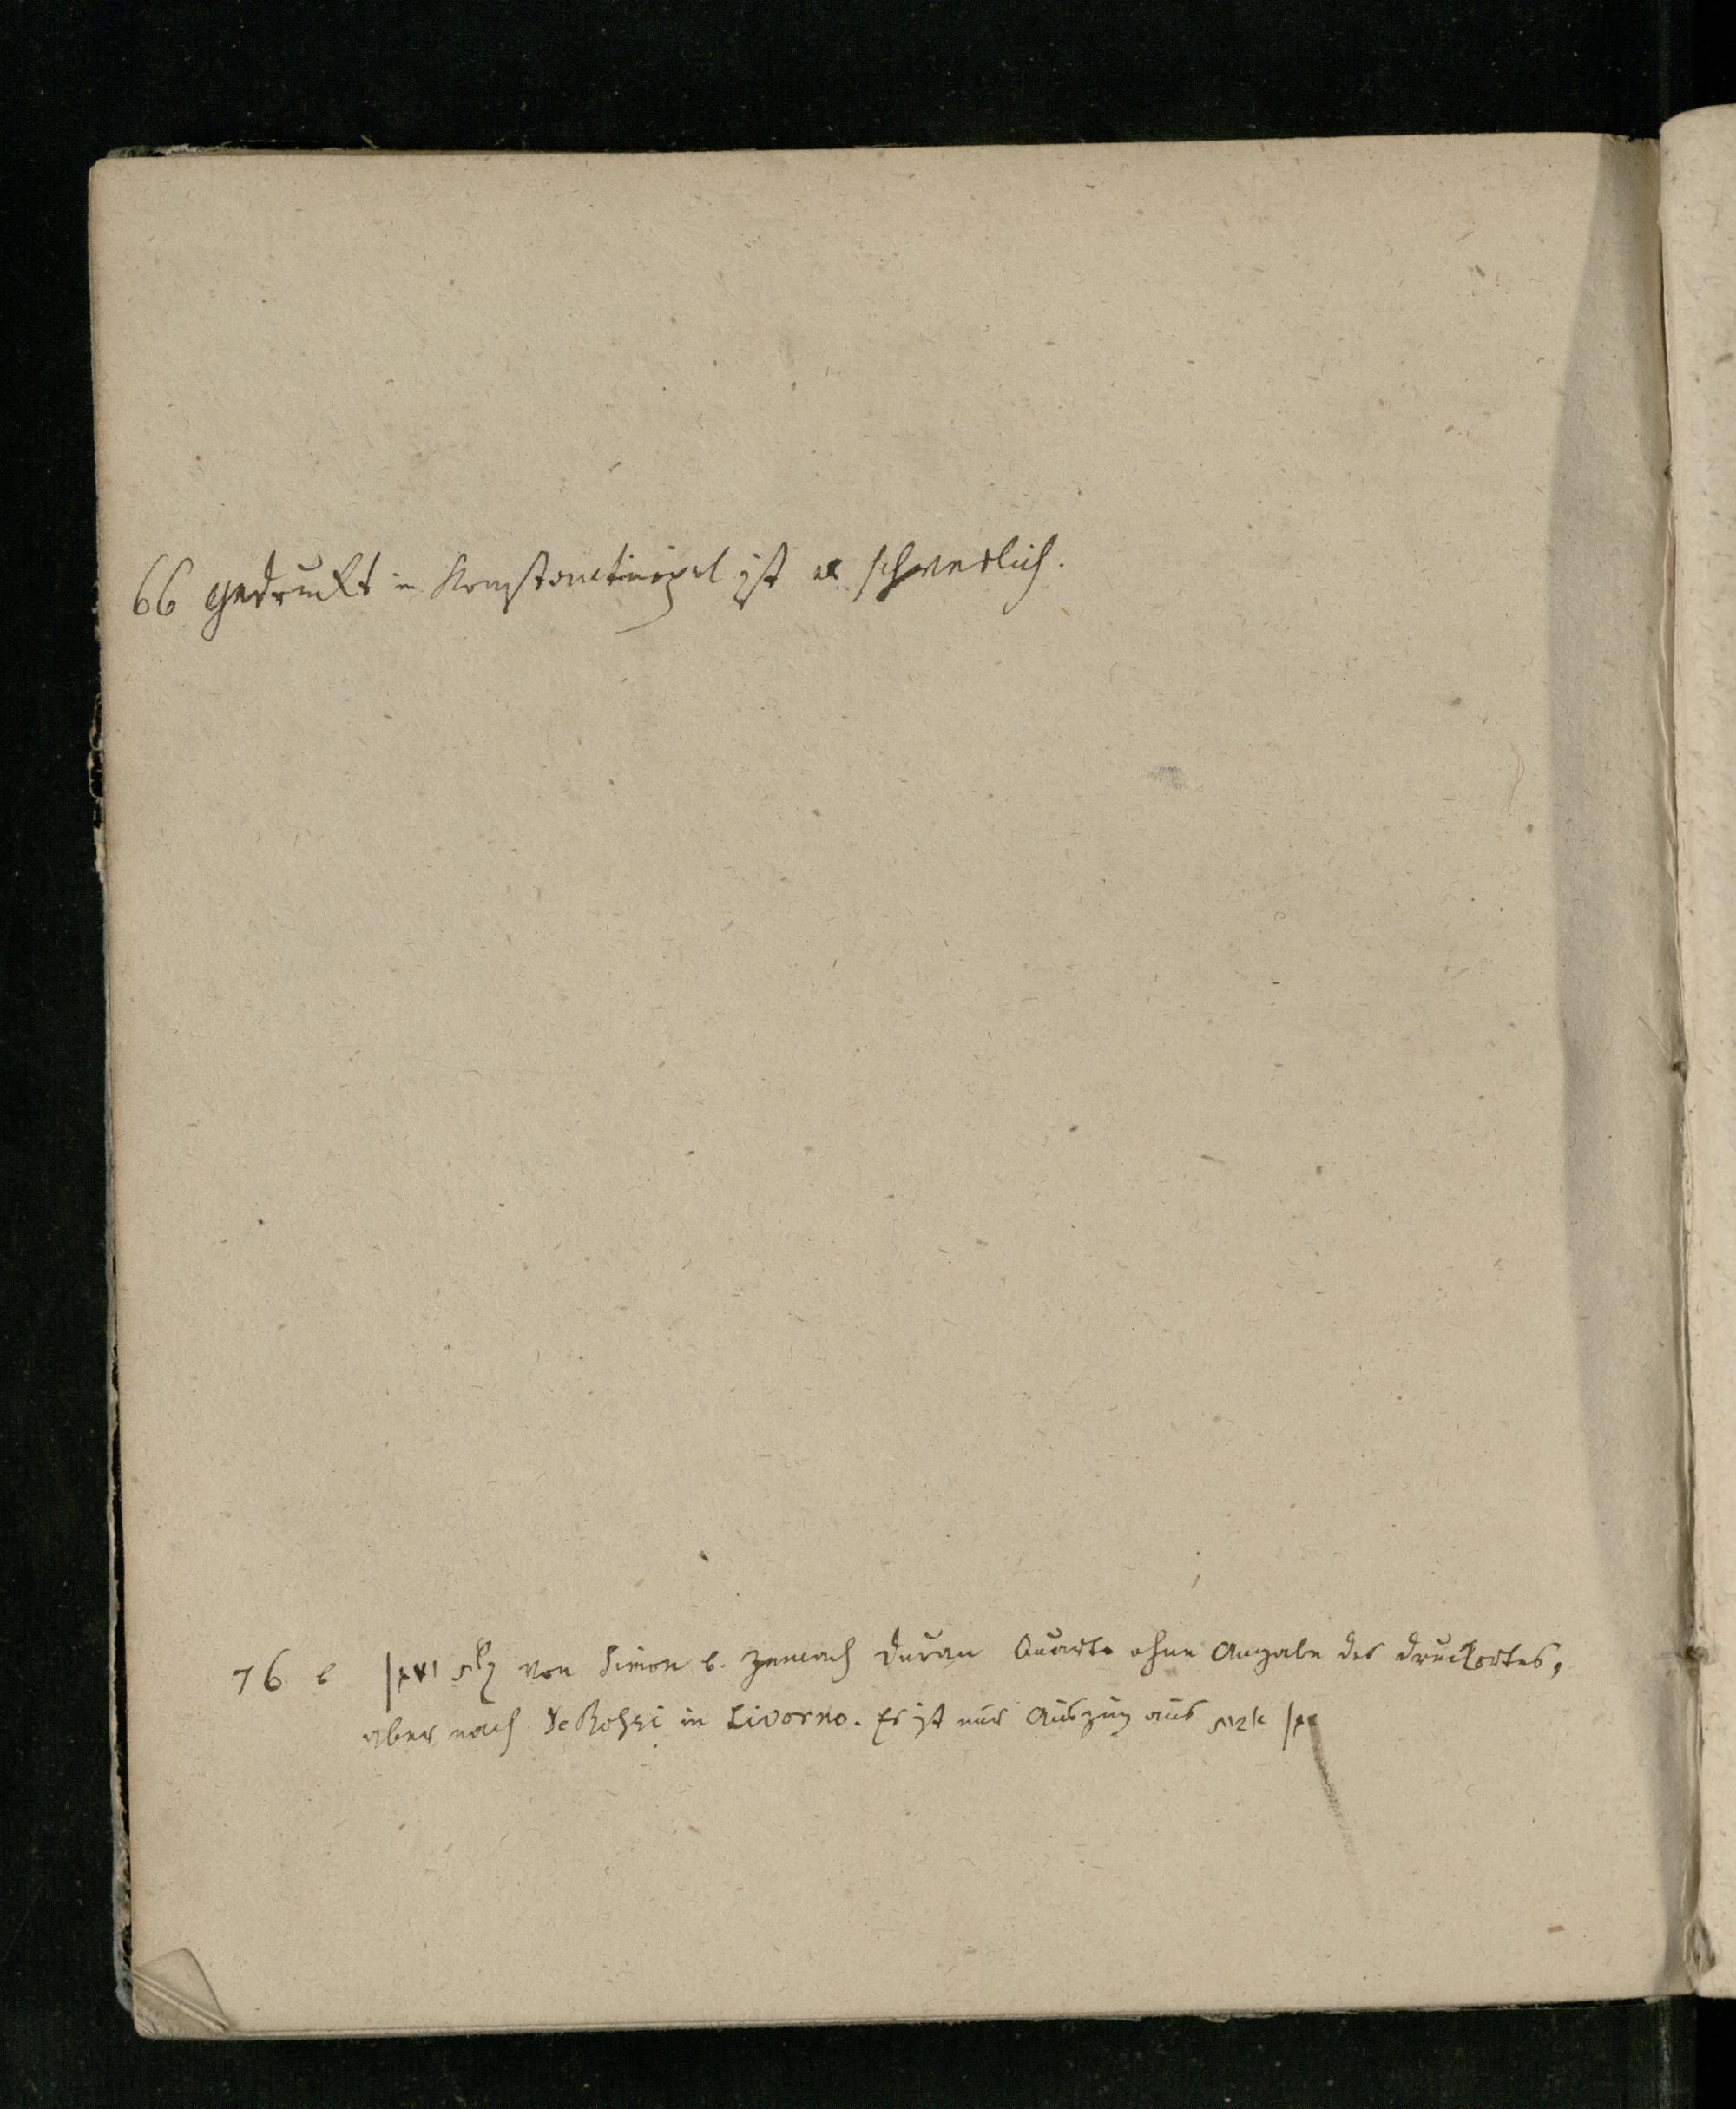 66 gedruckt in Konstantinopel ist es schwerlich.
76 b קשת ומגן von Simon b. Zemach Duran Quarto ohne Angabe des Druckortes,
aber nach De Rossi in Livorno. Es ist nur Auszug aus מגן אבות